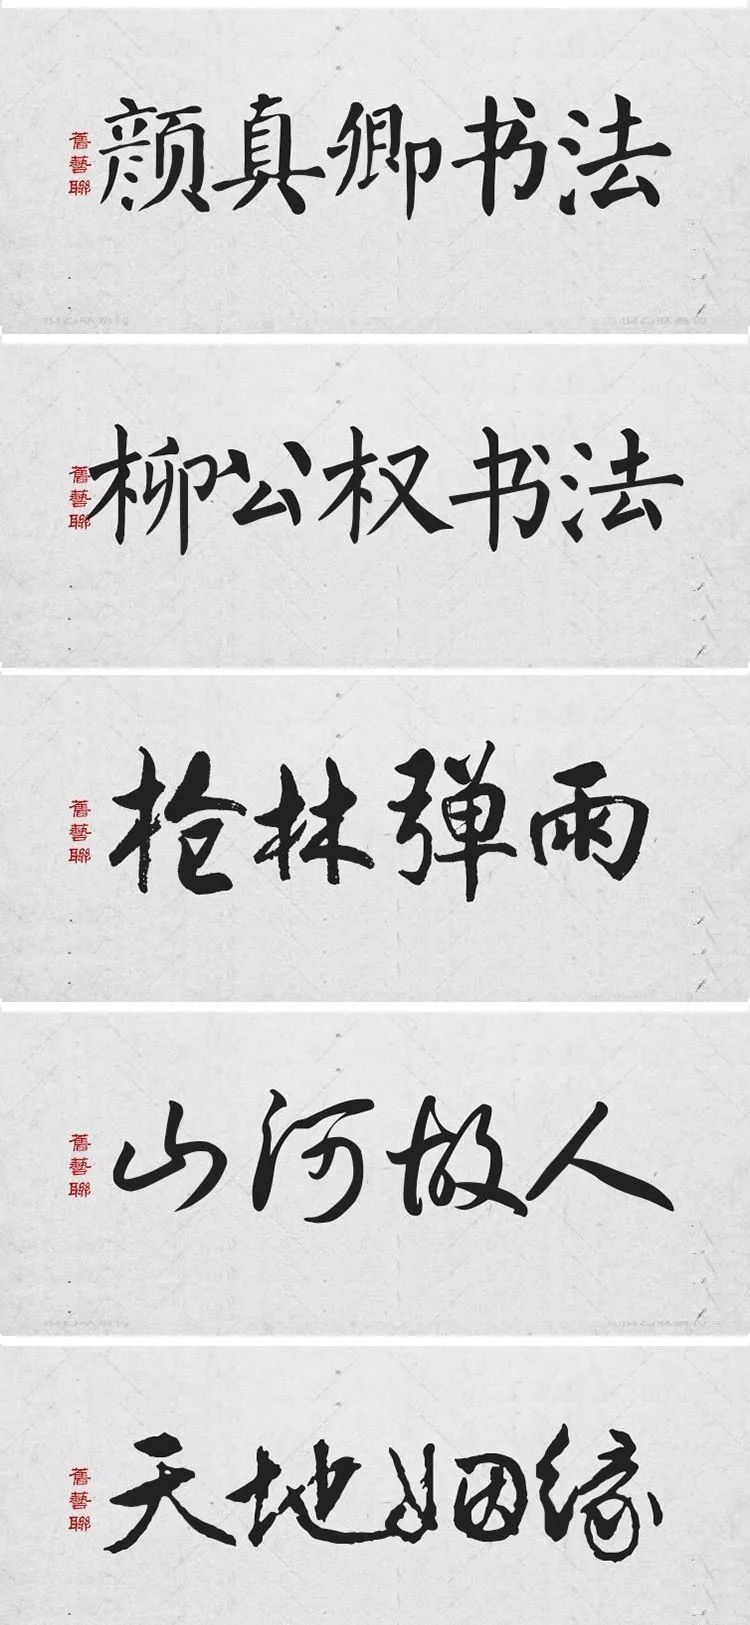 颜真卿书法
舊藝聯
柳公权书法
舊藝聯
枪林弹雨
舊藝聯
山河故人
舊藝聯
天地姻缘
舊藝聯